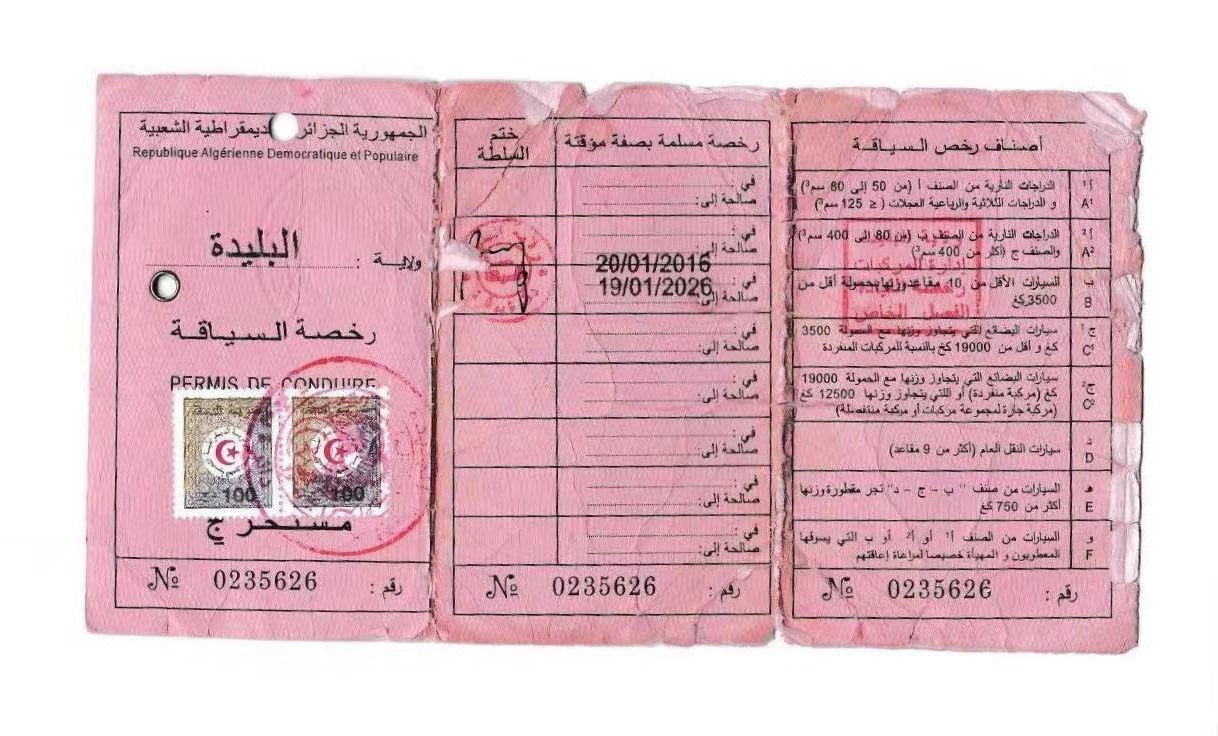 الجمهورية الجزائرية الديمقراطية الشعبية
Republique Algérienne Democratique et Populaire
ولاية : البليدة
رخصة السياقة
PERMIS DE CONDUIRE
100 100
مستخرج
رقم : 0235626 №
رخصة مسلمة بصفة مؤقتة
ختم السلطة
في :
صالحة إلى:
في :
صالحة إلى:
20/01/2016
في :
19/01/2026
صالحة إلى:
في :
صالحة إلى:
في :
صالحة إلى:
في :
صالحة إلى:
في :
صالحة إلى:
في :
صالحة إلى:
رقم : 0235626 №
أصناف رخص السياقة
أ¹ الدراجات النارية من الصنف أ (من 50 إلى 80 سم³)
A¹ و الدراجات الثلاثية والرباعية العجلات (≤ 125 سم³)
أ² الدراجات النارية من الصنف ب (من 80 إلى 400 سم³)
A² والصنف ج (أكثر من 400 سم³)
ب السيارات الأقل من 10 مقاعد وزنها بحمولة أقل من
B 3500كغ
ج¹ سيارات البضائع التي يتجاوز وزنها مع الحمولة 3500
C¹ كغ و أقل من 19000 كغ بالنسبة للمركبات المنفردة
ج² سيارات البضائع التي يتجاوز وزنها مع الحمولة 19000
كغ (مركبة منفردة) أو اللتي يتجاوز وزنها 12500 كغ
C² (مركبة جارة لمجموعة مركبات أو مركبة متفصلة)
د
D سيارات النقل العام (أكثر من 9 مقاعد)
هـ السيارات من صنف " ب - ج - د" تجر مقطورة وزنها
E أكثر من 750 كغ
و السيارات من الصنف أ¹ أو أ² أو ب التي يسوقها
F المعطوبون و المهيأة خصيصا لمراعاة إعاقتهم
إدارة المركبات
الفصل الخاص
رقم : 0235626 №